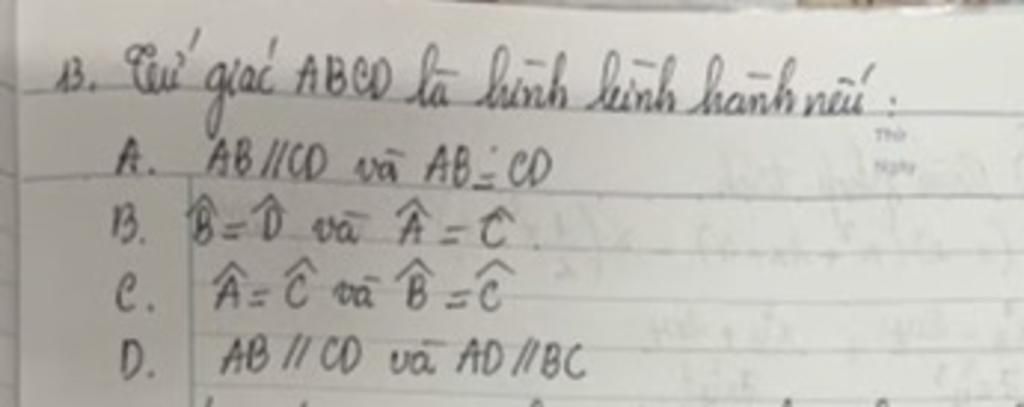 13. Tứ giác ABCD là hình bình hành nếu:
Thứ
A. AB // CD và AB = CD
Ngày
B. B̂ = D̂ và Â = Ĉ.
C. Â = Ĉ và B̂ = Ĉ
D. AB // CD và AD // BC